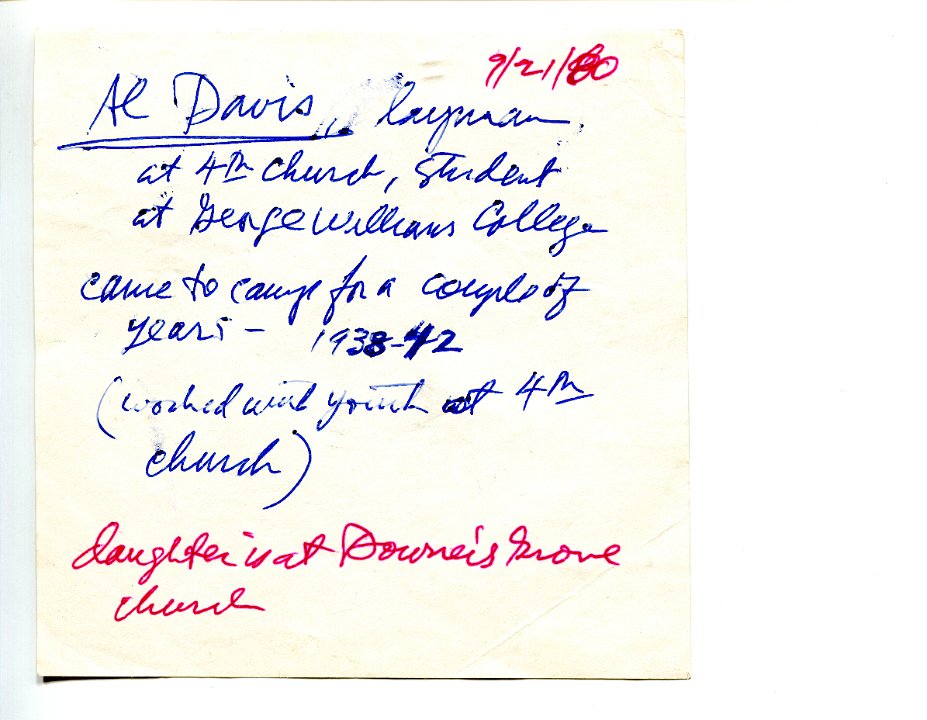 9/21/80
Al Davis, layman
at 4th church, student
at George Williams College
came to camp for a couple of
years - 1938-42
(worked with youth at 4th
church)
daughter is at Downer's Grove
church